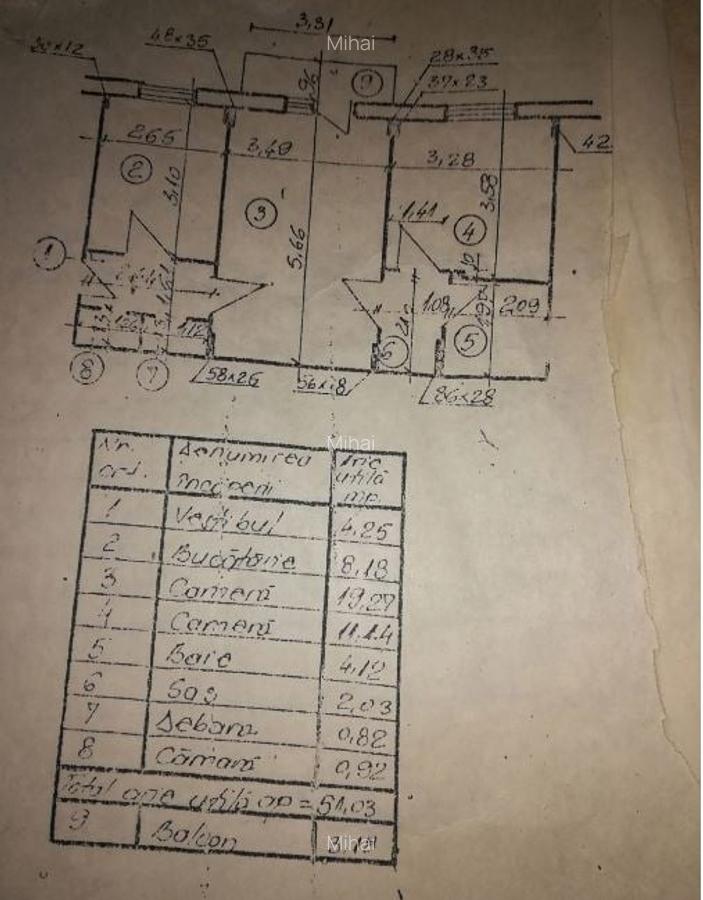 3,31
Mihai
30x12
48x35
28x35
37x23
96
9
42
265
3,49
3,28
2
3,10
3
5,66
1,41
3,58
4
1
1,08
209
5
6
1,12
8
7
58x26
56x18
86x28
Mihai
Nr. crt.
Denumirea
încăperii
Arie
utilă
mp.
1 Vestibul 4,25
2 Bucătărie 8,18
3 Cameră 19,27
4 Cameră 11,14
5 Baie 4,12
6 Sas 2,03
7 Debara 0,82
8 Cămară 0,92
Total arie utilă ap = 51,03
9 Balcon
Mihai